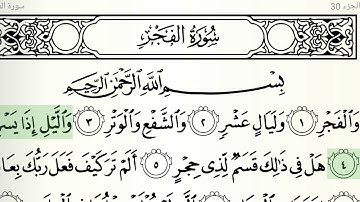 الجزء 30
سورة الف
سُورَةُ الفَجْرِ
بِسْمِ اللَّهِ الرَّحْمَٰنِ الرَّحِيمِ
وَالْفَجْرِ ١ وَلَيَالٍ عَشْرٍ ٢ وَالشَّفْعِ وَالْوَتْرِ ٣ وَاللَّيْلِ إِذَا يَسْرِ
٤ هَلْ فِي ذَٰلِكَ قَسَمٌ لِّذِي حِجْرٍ ٥ أَلَمْ تَرَ كَيْفَ فَعَلَ رَبُّكَ بِعَا